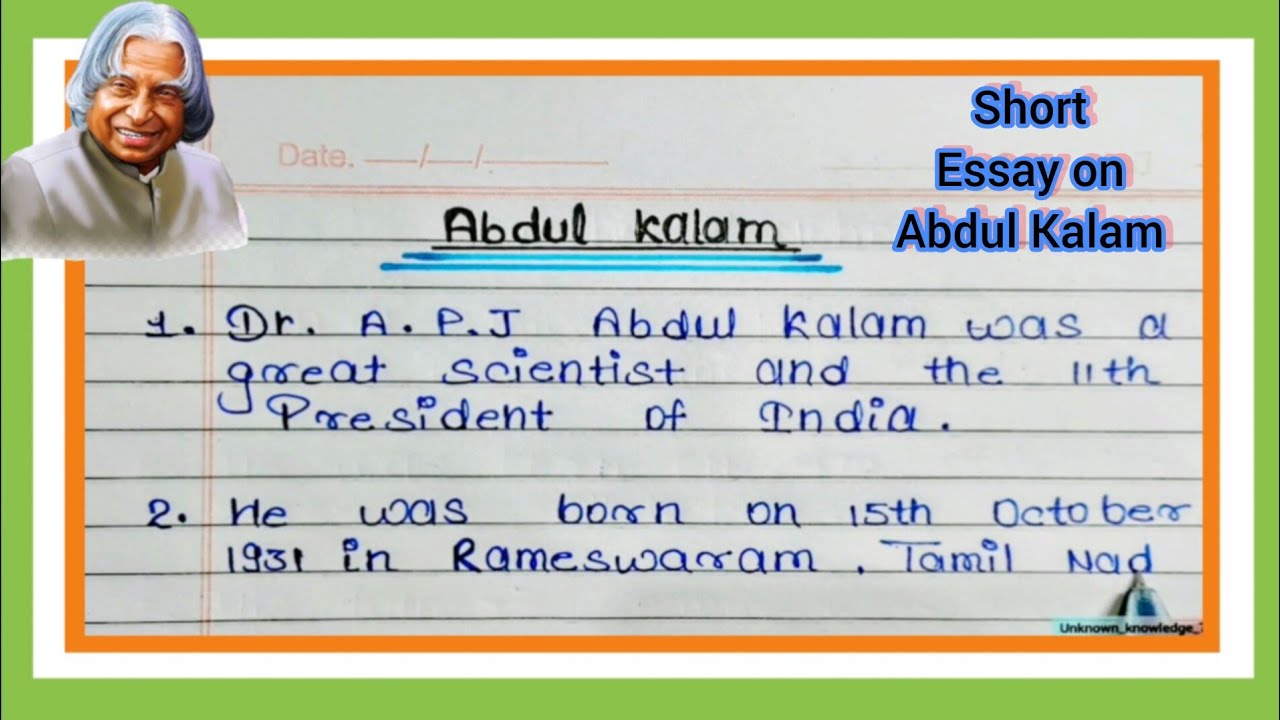 Short
Essay on
Abdul Kalam
Date. —/—/——
Abdul Kalam
1. Dr. A.P.J Abdul Kalam was a
great scientist and the 11th
President of India.
2. He was born on 15th October
1931 in Rameswaram, Tamil Nad
Unknown_knowledge_